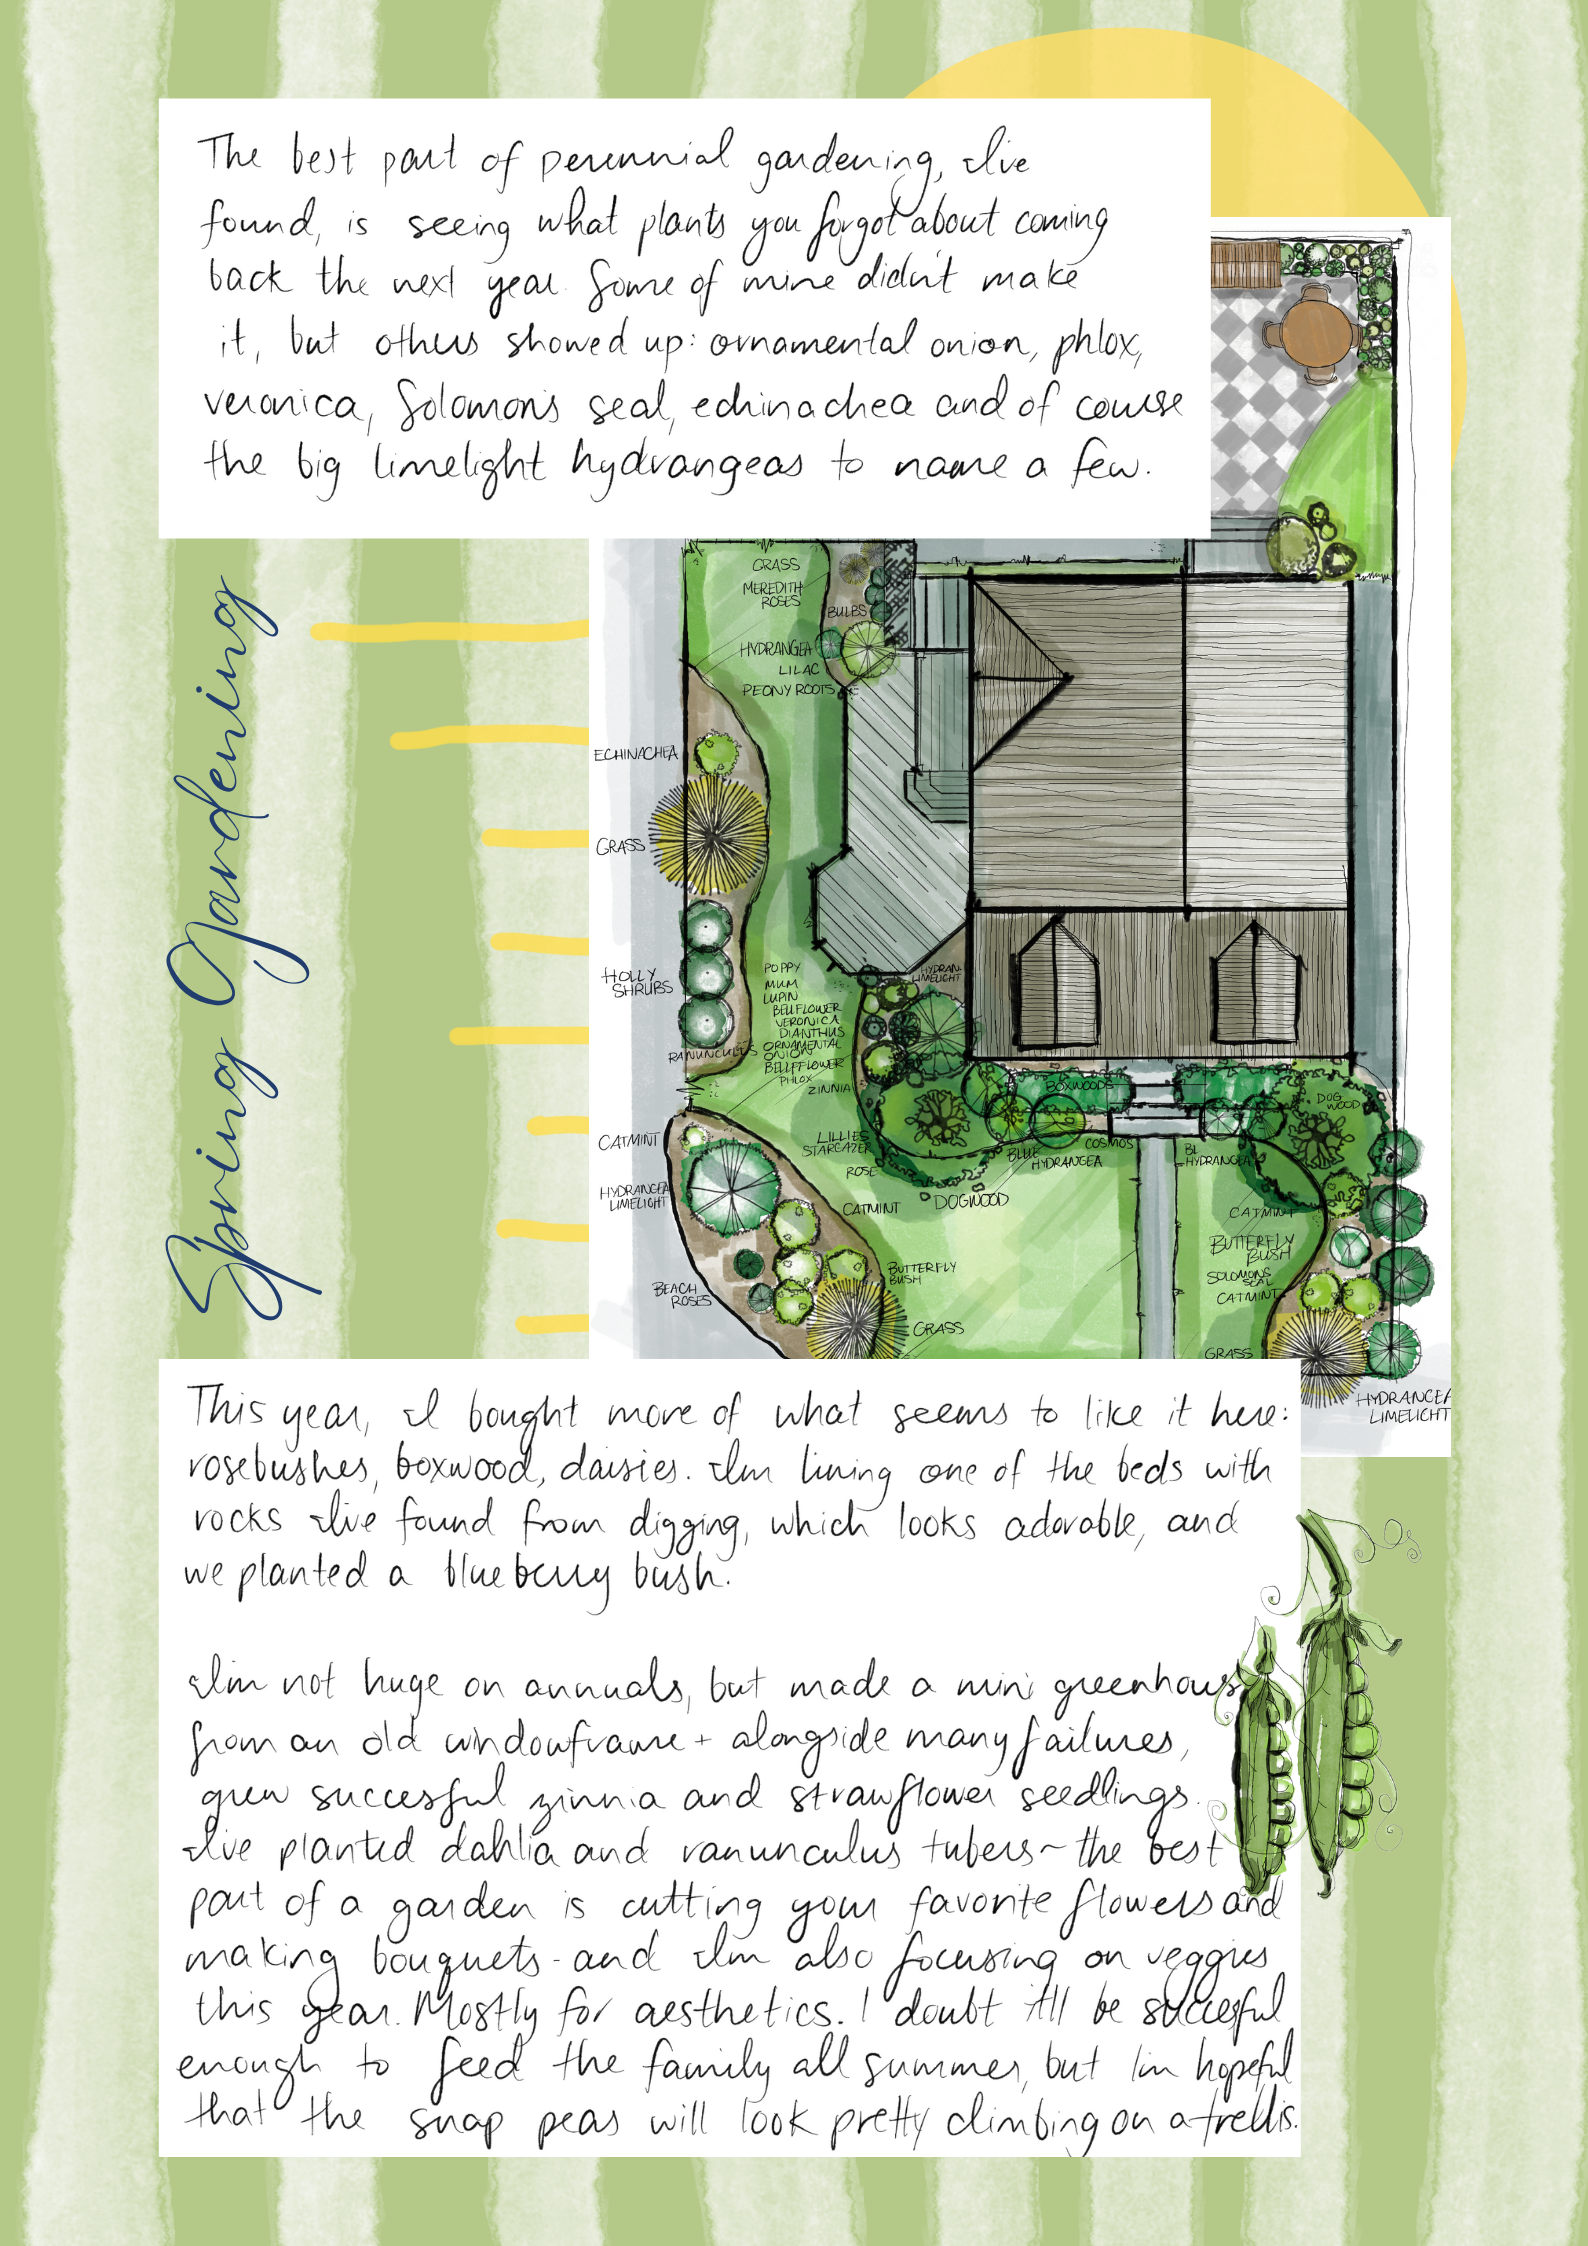 The best part of perennial gardening, I've
found, is seeing what plants you forgot about coming
back the next year. Some of mine didn't make
it, but others showed up: ornamental onion, phlox,
veronica, Solomon's seal, echinachea and of course
the big limelight hydrangeas to name a few.
Spring Gardening
GRASS
MEREDITH
ROSES
BULBS
HYDRANGEA
LILAC
PEONY ROOTS
ECHINACHEA
GRASS
HOLLY
SHRUBS
RANUNCULUS
POPPY
MUM
LUPIN
BELLFLOWER
VERONICA
DIANTHUS
ORNAMENTAL
ONION
BELLFLOWER
PHLOX
ZINNIA
HYDRAN.
LIMELIGHT
BOXWOODS
DOG
WOOD
LILLIES
STARGAZER
ROSE
BLUE
HYDRANGEA
COSMOS
BL
HYDRANGEA
DOGWOOD
CATMINT
HYDRANGEA
LIMELIGHT
CATMINT
BEACH
ROSES
BUTTERFLY
BUSH
GRASS
CATMINT
BUTTERFLY
BUSH
SOLOMONS
SEAL
CATMINT
GRASS
HYDRANGEA
LIMELIGHT
This year, I bought more of what seems to like it here:
rosebushes, boxwood, daisies. I'm lining one of the beds with
rocks I've found from digging, which looks adorable, and
we planted a blueberry bush.
I'm not huge on annuals, but made a mini greenhouse
from an old windowframe + alongside many failures,
grew succesful zinnia and strawflower seedlings.
I've planted dahlia and ranunculus tubers~ the best
part of a garden is cutting your favorite flowers and
making bouquets - and I'm also focusing on veggies
this year. Mostly for aesthetics. I doubt it'll be succesful
enough to feed the family all summer, but I'm hopeful
that the snap peas will look pretty climbing on a trellis.